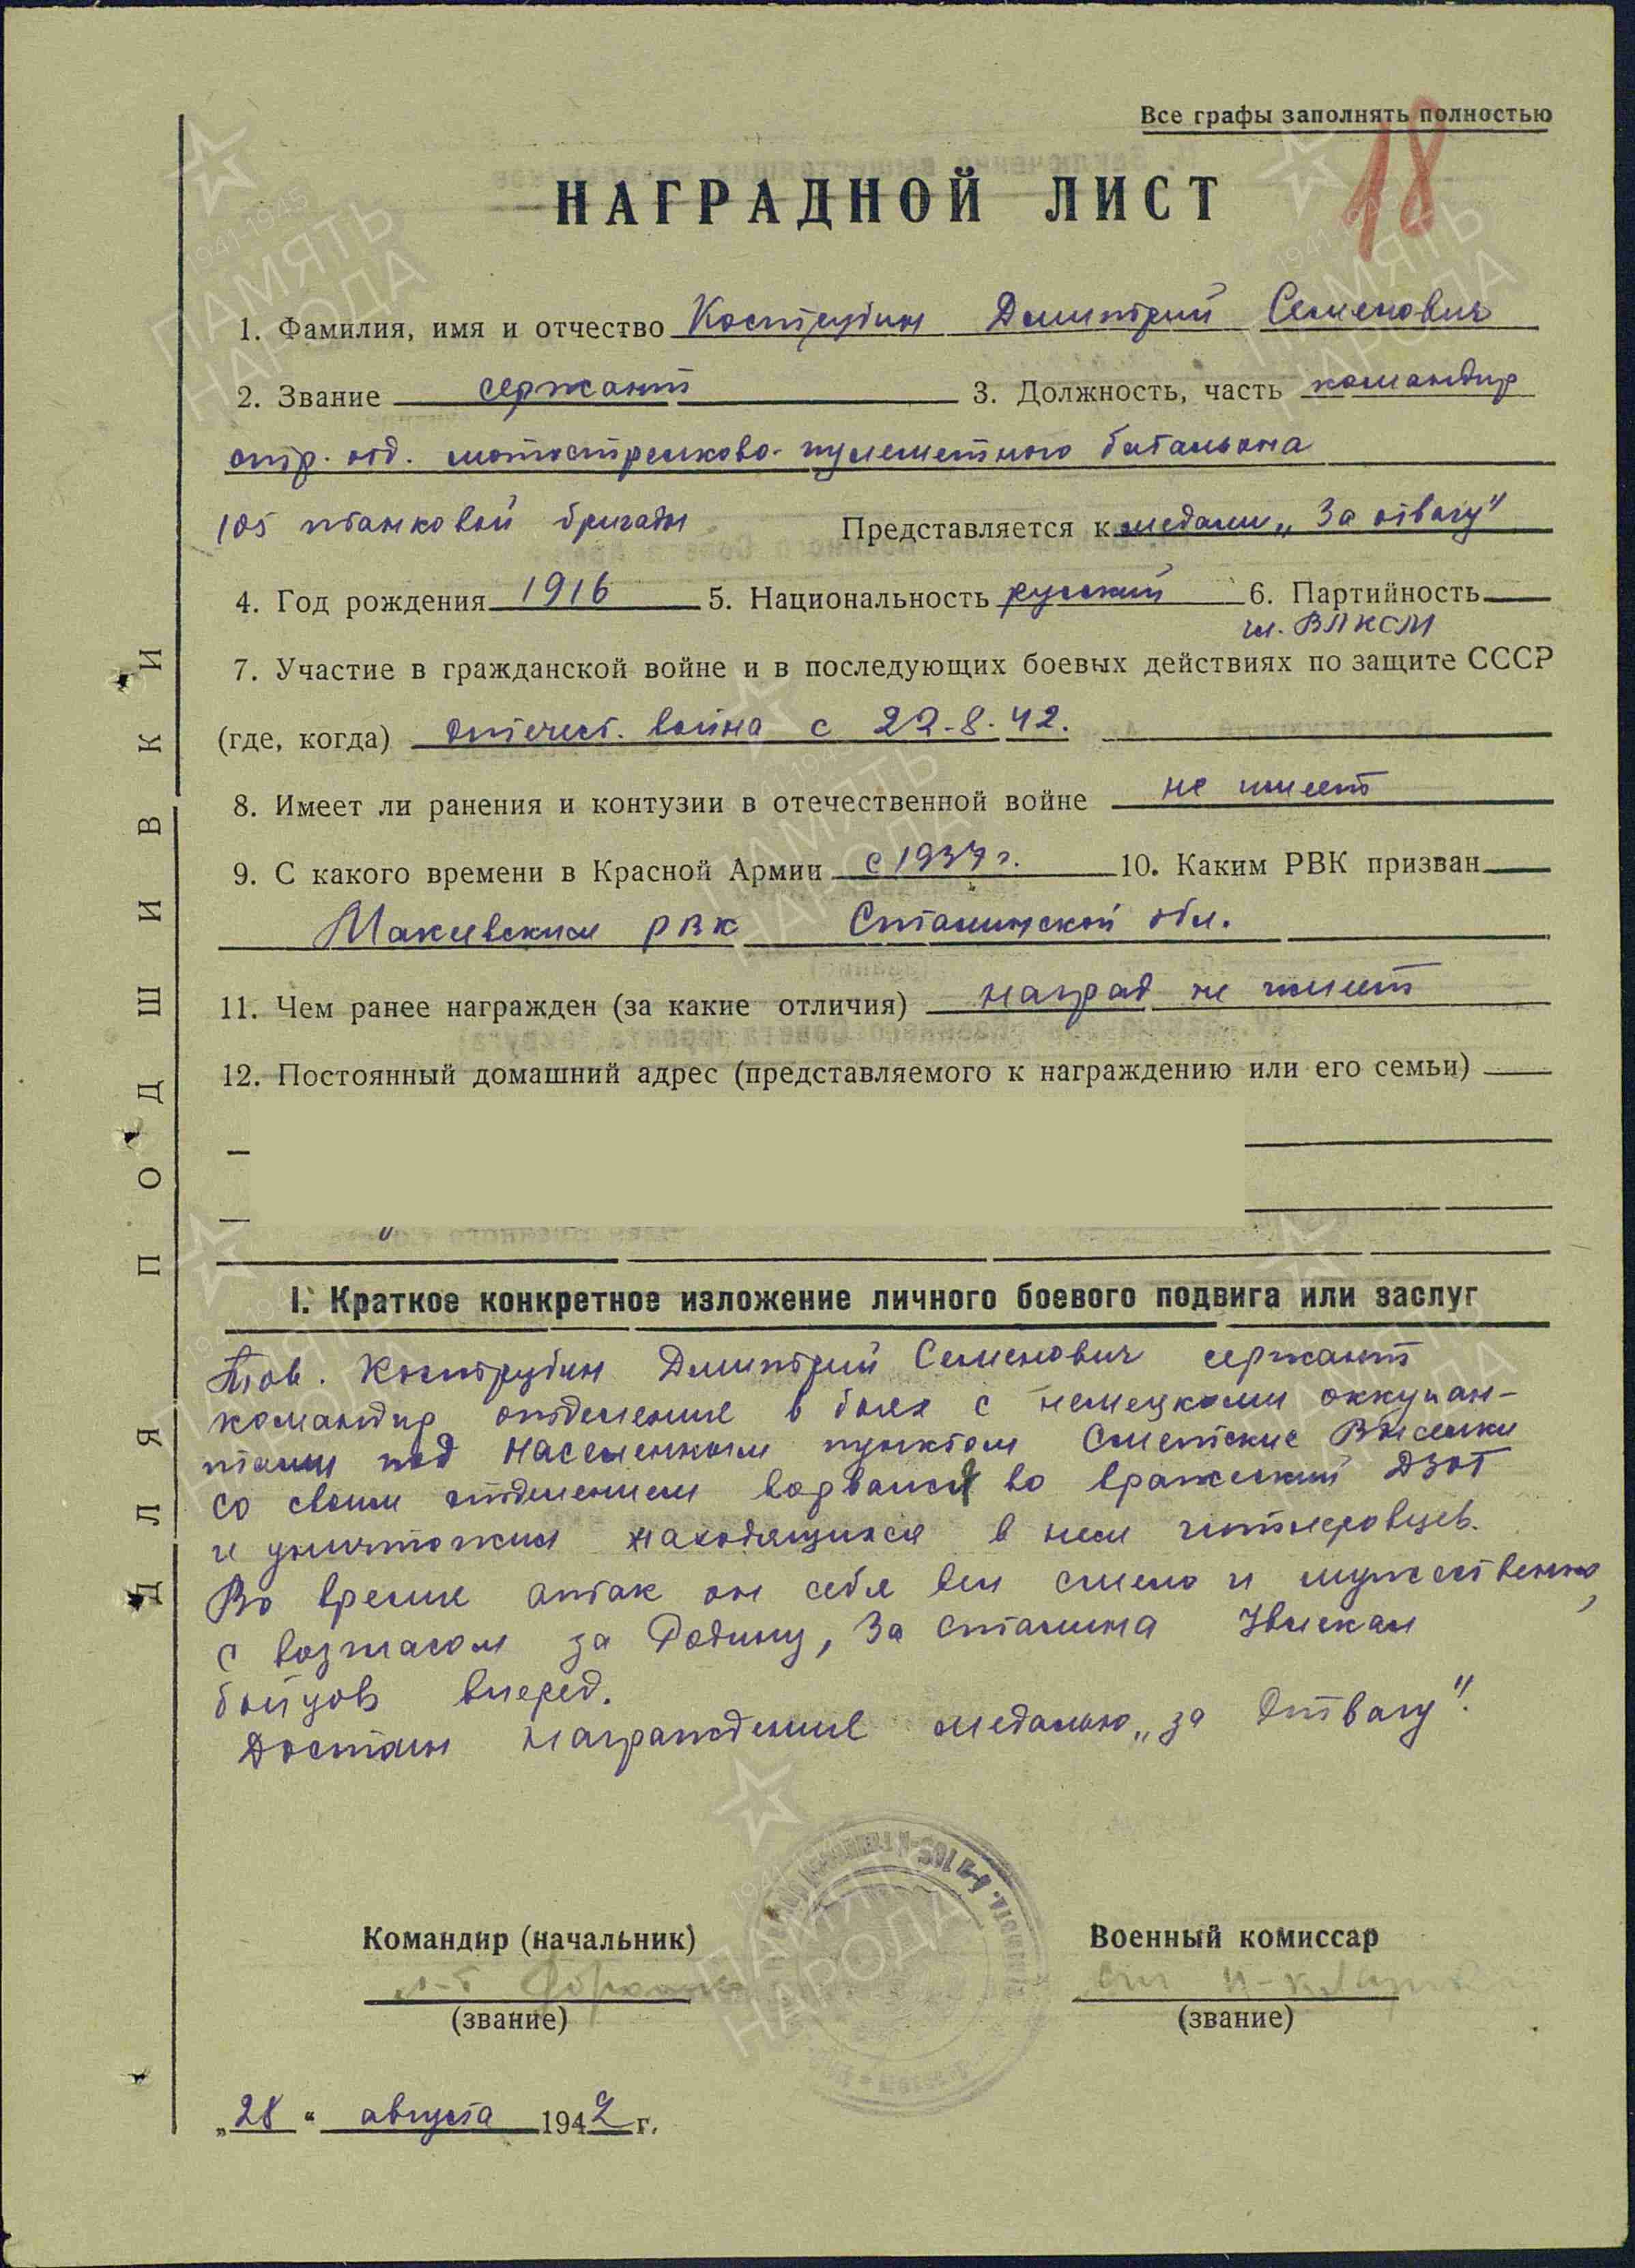 Все графы заполнять полностью
18
НАГРАДНОЙ ЛИСТ
1. Фамилия, имя и отчество Кострубин Димитрий Семенович
2. Звание сержант 3. Должность, часть командир
стр. отд. мотострелково-пулеметного батальона
105 танковой бригады Представляется к медали „За отвагу"
4. Год рождения 1916 5. Национальность русский 6. Партийность
чл. ВЛКСМ
7. Участие в гражданской войне и в последующих боевых действиях по защите СССР
(где, когда) Отечест. война с 22.8.42.
8. Имеет ли ранения и контузии в отечественной войне не имеет
9. С какого времени в Красной Армии с 1937 г. 10. Каким РВК призван
Макеевским РВК Сталинской обл.
11. Чем ранее награжден (за какие отличия) наград не имеет
12. Постоянный домашний адрес (представляемого к награждению или его семьи)
I. Краткое конкретное изложение личного боевого подвига или заслуг
Тов. Кострубин Димитрий Семенович сержант
командир отделения в боях с немецкими оккупан-
тами под населенным пунктом Сметские Выселки
со своим отделением ворвался во вражеский ДЗОТ
и уничтожил находящихся в нем гитлеровцев.
Во время атак он себя вел смело и мужественно,
с возгласом за Родину, За Сталина Увлекал
бойцов вперед.
Достоин награждения медалью „за Отвагу".
Командир (начальник) Военный комиссар
(звание) (звание)
„28" августа 1942 г.
ДЛЯ ПОДШИВКИ
1941-1945
ПАМЯТЬ
НАРОДА